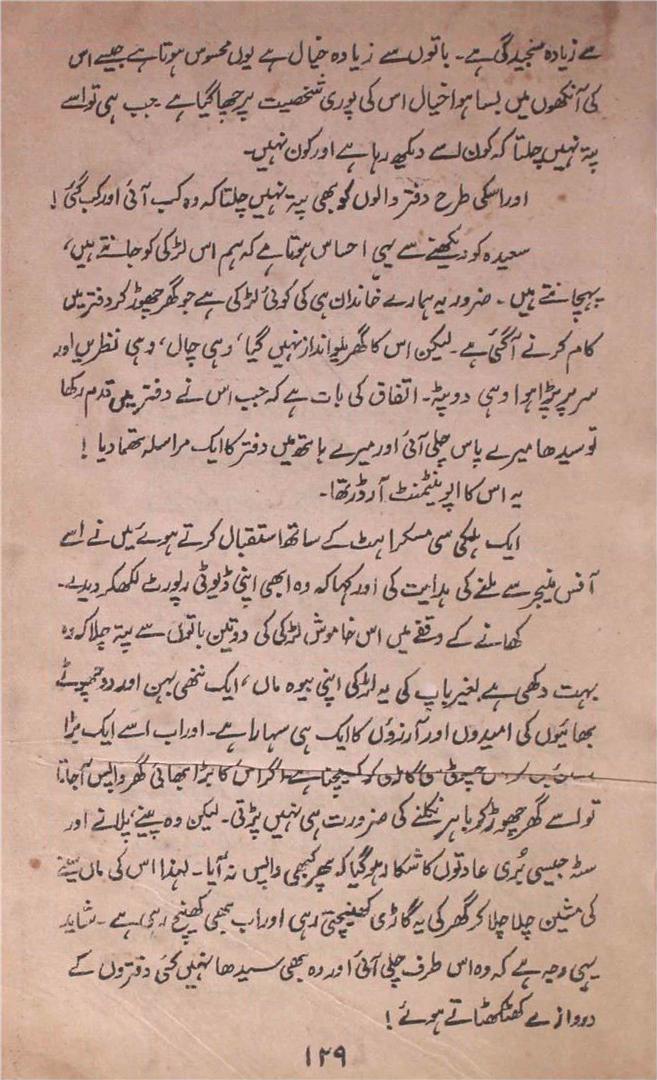 سے زیادہ سنجیدگی ہے۔ باتوں سے زیادہ خیال ہے یوں محسوس ہوتا ہے جیسے اس
کی آنکھوں میں بسا ہوا خیال اس کی پوری شخصیت پر چھا گیا ہے۔ جب ہی تو اسے
پتہ نہیں چلتا کہ کون اسے دیکھ رہا ہے اور کون نہیں۔
اور اسکی طرح دفتر والوں کو بھی پتہ نہیں چلتا کہ وہ کب آئی اور کب گئی!
سعیدہ کو دیکھنے سے یہی احساس ہوتا ہے کہ ہم اس لڑکی کو جانتے ہیں،
پہچانتے ہیں۔ ضرور یہ ہمارے خاندان ہی کی کوئی لڑکی ہے جو گھر چھوڑ کر دفتر میں
کام کرنے آ گئی ہے۔ لیکن اس کا گھریلو انداز نہیں گیا، وہی چال، وہی نظریں اور
سر پر پڑا ہوا وہی دوپٹہ۔ اتفاق کی بات ہے کہ جب اس نے دفتر میں قدم رکھا
تو سیدھا میرے پاس چلی آئی اور میرے ہاتھ میں دفتر کا ایک مراسلہ تھما دیا!
یہ اس کا اپوینٹمنٹ آرڈر تھا۔
ایک ہلکی سی مسکراہٹ کے ساتھ استقبال کرتے ہوئے میں نے اسے
آفس منیجر سے ملنے کی ہدایت کی اور کہا کہ وہ ابھی اپنی ڈیوٹی رپورٹ لکھکر دیدے۔
کھانے کے وقفے میں اس خاموش لڑکی کی دو تین باتوں سے پتہ چلا کہ وہ
بہت دکھی ہے بغیر باپ کی یہ لڑکی اپنی بیوہ ماں، ایک ننھی بہن اور دو چھوٹے
بھائیوں کی امیدوں اور آرزوؤں کا ایک ہی سہارا ہے۔ اور اب اسے ایک بڑا
کھینچنا ہے اگر اس کا بڑا بھائی گھر واپس آ جاتا
تو اسے گھر چھوڑ کر باہر نکلنے کی ضرورت ہی نہیں پڑتی۔ لیکن وہ پینے، پلانے اور
سٹہ جیسی بُری عادتوں کا شکار ہو گیا کہ پھر کبھی واپس نہ آیا۔ لہٰذا اس کی ماں سینے
کی مشین چلا چلا کر گھر کی یہ گاڑی کھینچتی رہی اور اب بھی کھینچ رہی ہے۔ شاید
یہی وجہ ہے کہ وہ اس طرف چلی آئی اور وہ بھی سیدھا نہیں کئی دفتروں کے
دروازے کھٹکھٹاتے ہوئے!
۱۲۹